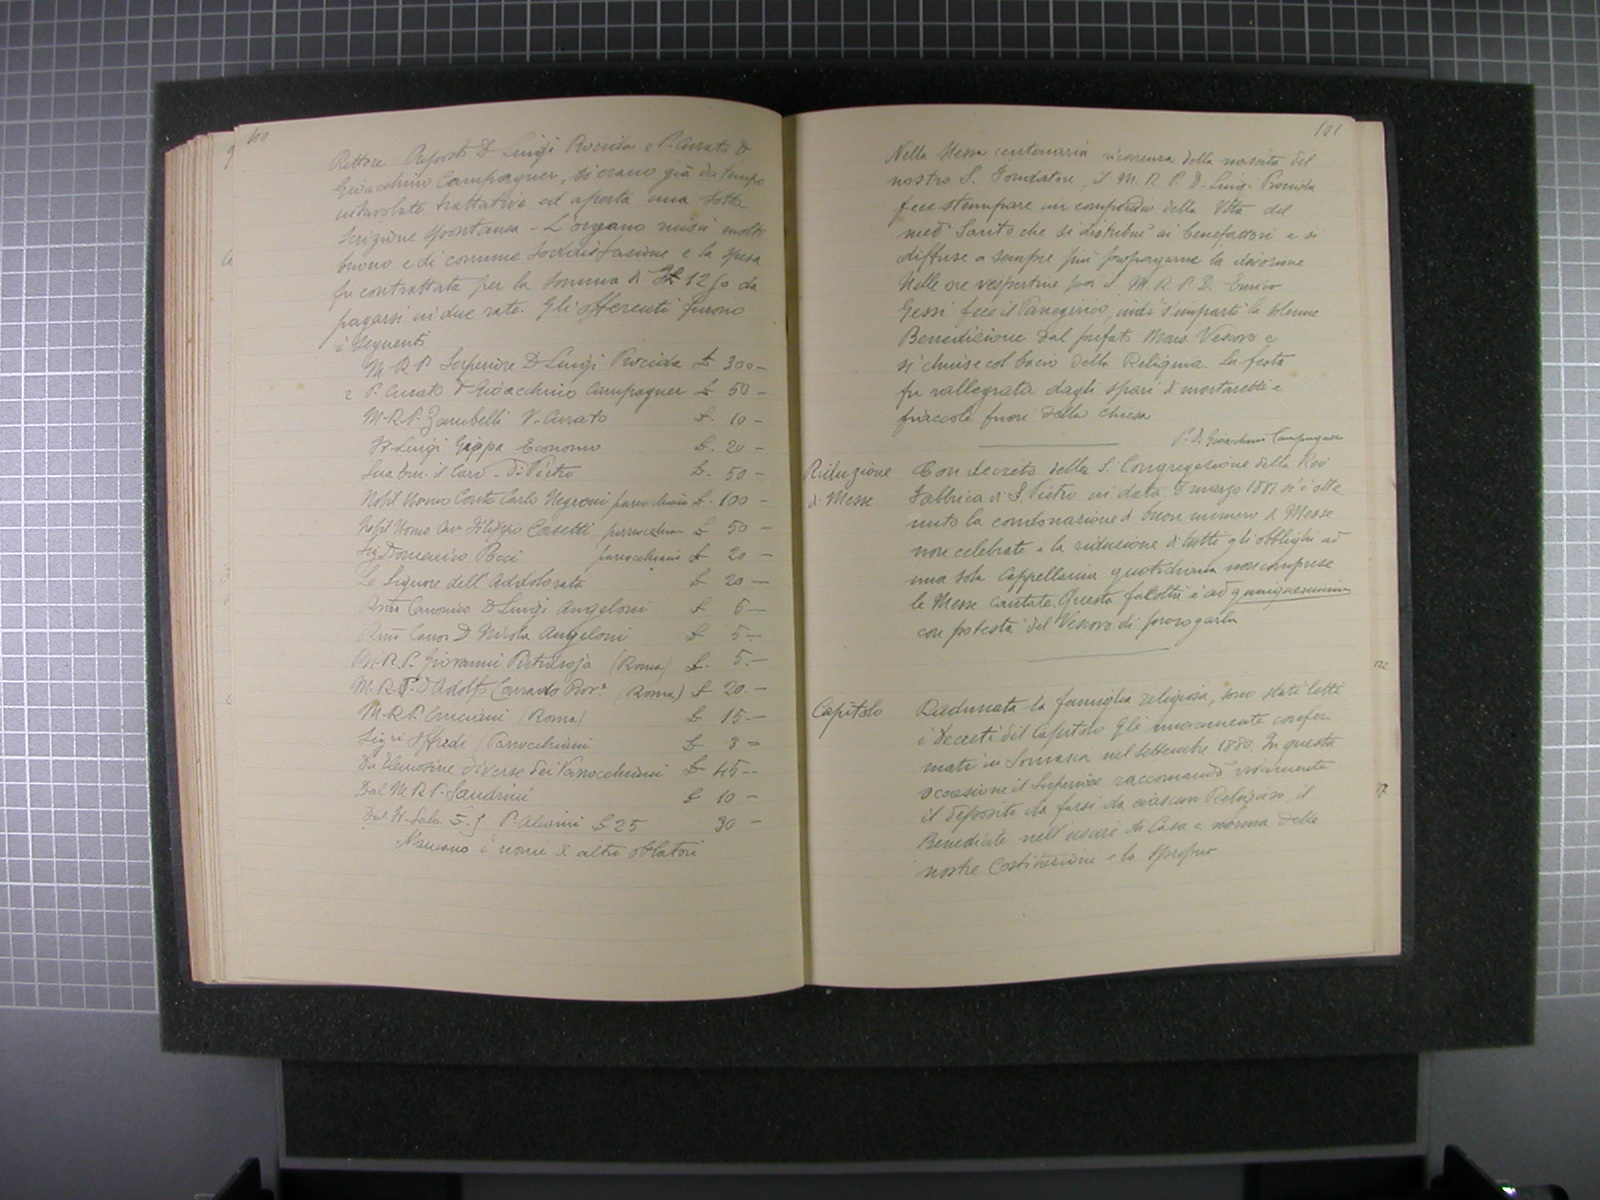 100
Rettore Preposto D. Luigi Procida e P. Curato D.
Gioacchino Campagner, si erano già da tempo
intavolate trattative ed aperta una sotto-
scrizione spontanea - L'organo riuscì molto
buono e di comune soddisfazione e la spesa
fu contrattata per la somma di 1250 da
pagarsi in due rate. Gli offerenti furono
i seguenti
M. R. P. Superiore D. Luigi Procida £ 300 -
P. Curato D. Gioacchino Campagner £ 50 -
M. R. P. Zambelli V. Curato £. 10 -
Luigi Gappa Economo £. 20 -
Sua Em. il Card. Di Pietro £. 50 -
Nobil Uomo Conte Carlo Negroni parrocchiano £. 100 -
Nobil Uomo Cav. Filippo Corsetti parrocchiano £ 50 -
Sig. Domenico Poci parrocchiani £ 20 -
Le Signore dell'Addolorata £ 20 -
Rmo Canonico D. Luigi Angeloni £ 5 -
Rmo Canco D. Nicola Angeloni £ 5. -
M. R. P. Giovanni (Roma) £. 5. -
M. R. P. D. Adolfo Conrado (Roma) £ 20. -
M. R. P. Cruciani (Roma) £ 15. -
Sigri Offredi (Parrocchiani £ 3 =
Da Elemosine diverse dei Parrocchiani £ 45 --
Dal M. R. P. Sandrini £ 10 -
P. Alcaini £ 25 30 -
Mancano i nomi di altri oblatori
101
Nella stessa centenaria ricorrenza della nascita del
nostro S. Fondatore, il M. R. P. D. Luigi Procida
fece stampare un compendio della Vita del
med° Santo che si distribuì ai benefattori e si
diffuse a sempre più propagarne la devozione
Nelle ore vespertine poi il M. R. P. D. Enrico
Gessi fece il Panegirico, indi s'impartì la solenne
Benedizione dal prefato Mons. Vescovo e
si chiuse col bacio della Reliquia. La festa
fu rallegrata dagli spari di mortaretti e
fiaccole fuori della chiesa
P. D. Gioacchino Campagner
Riduzione
di Messe
Con decreto della S. Congregazione della Rev
Fabbrica di S. Pietro in data marzo 1881 si è otte
nuto la condonazione di buon numero di Messe
non celebrate e la riduzione di tutti gli obblighi ad
una sola Cappellania quotidiana non comprese
le Messe cantate. Questa facoltà è ad quinquennium
con potestà del Vescovo di prorogarla
Capitolo
Radunata la famiglia religiosa, sono stati letti
i Decreti del Capitolo Gle nuovamente confer
mati in Somasca nel settembre 1880. In questa
occasione il Superiore raccomandò vivamente
il deposito da farsi da ciascun Religioso il
Benedicite nell'uscire di Casa a norma delle
nostre Costituzioni e lo sproprio